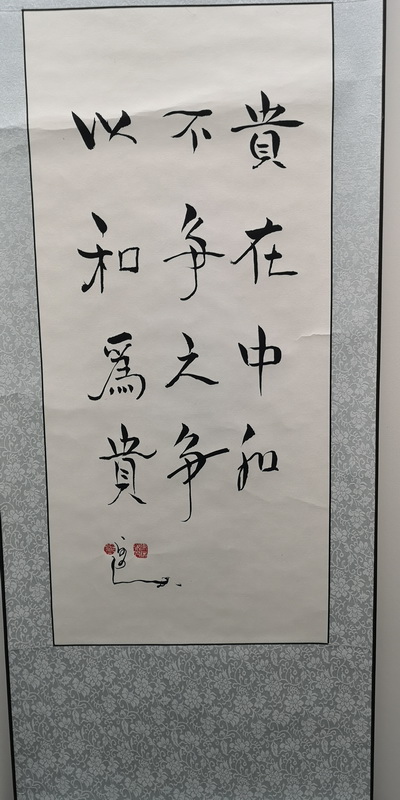 貴在中和
不争之争
以和爲貴